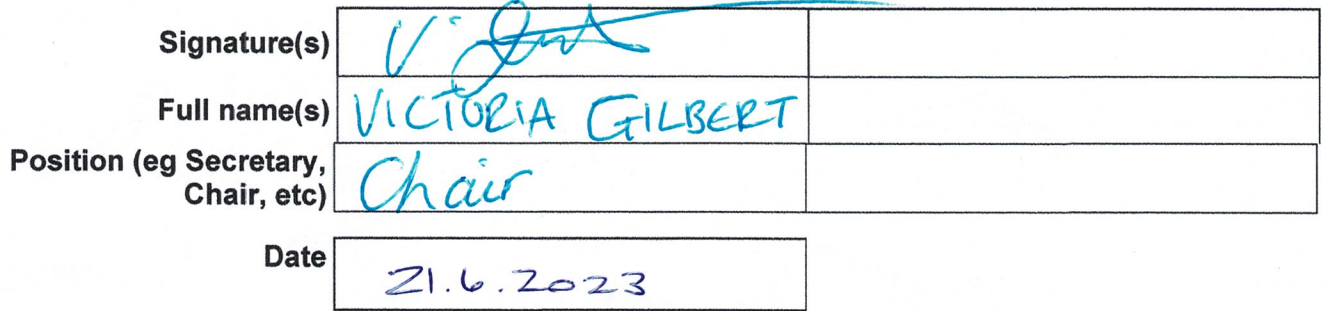 Signature(s)
Full name(s) VICTORIA GILBERT
Position (eg Secretary,
Chair, etc) Chair
Date 21.6.2023